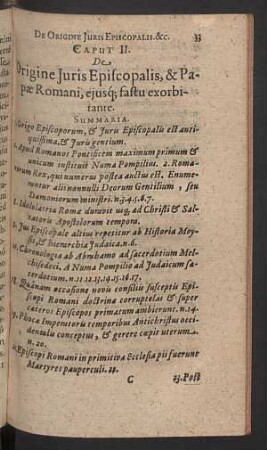 DE ORIGINE JURIS EPISCOPALIS. &c. 33
CAPUT II.
De
Origine Juris Episcopalis, & Pa-
pæ Romani, ejusq; fastu exorbi-
tante.
SUMMARIA.
Origo Episcoporum, & Juris Episcopalis est anti-
quissima, & Juris gentium.
Apud Romanos Pontificem maximum primum &
unicum instituit Numa Pompilius. 2. Romu-
lorum Rex, qui numerus postea auctus est. Enume-
rantur alii nonnulli Deorum Gentilium, seu
Dæmoniorum ministri. n. 3. 4. 5. 6. 7.
Idololatria Romæ duravit usq; ad Christi & Sal-
vatoris Apostolorum tempora.
Jus Episcopale altius repetitur ab Historia Moy-
sis, & hierarchia Judaica. n. 6.
Chronologea ab Abrahamo ad sacerdotium Mel-
chisedeci, A Numa Pompilio ad Judaicum sa-
cerdotium. n. 11. 12. 13. 14. 15. 16. 17.
Quânam occasione novo consilio suscepto Epi-
scopi Romani doctrinæ corruptelas & super
cæteros Episcopos primatum ambierunt. n. 14.
Phocæ Imperatoris temporibus Antichristus occi-
dentalis conceptus, & gerere cœpit uterum.
n. 20.
Episcopi Romani in primitiva Ecclesia pii fuerunt
Martyres pauperculi. 21.
C 23. Post